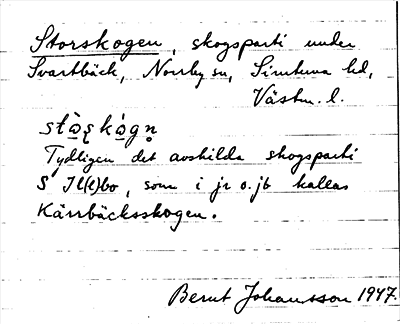 Storskogen, skogsparti under
Svartbäck, Norrby sn, Simtuna hd,
Västm. l.
Tydligen det avskilda skogsparti
S Il(l)bo, som i jr o. jb kallas
Kärrbäcksskogen.
Bernt Johansson 1947.